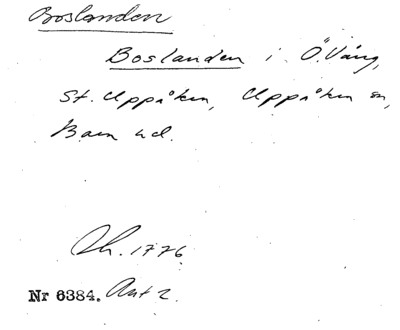 Boslanden
Boslanden i Ö. Vång,
St. Uppåkra, Uppåkra sn,
Bara hd.
Lh. 1776
Nr 6384. Akt 2.